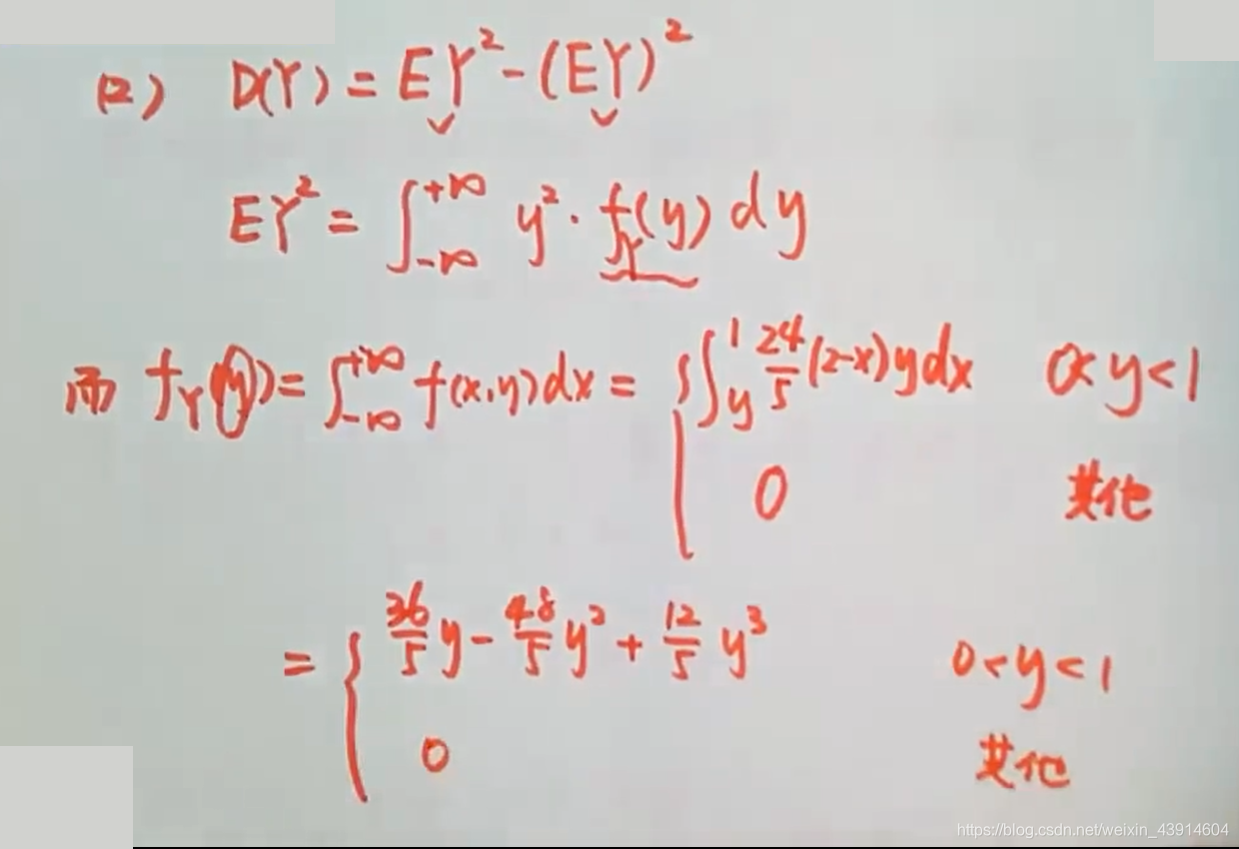 (2) D(Y) = EY² - (EY)²
EY² = ∫_{-∞}^{+∞} y² · f_Y(y) dy
而 f_Y(y) = ∫_{-∞}^{+∞} f(x,y)dx = { ∫_y^1 24/5 (2-x)ydx 0<y<1
0 其他
= { 36/5 y - 48/5 y² + 12/5 y³ 0<y<1
0 其他
https://blog.csdn.net/weixin_43914604